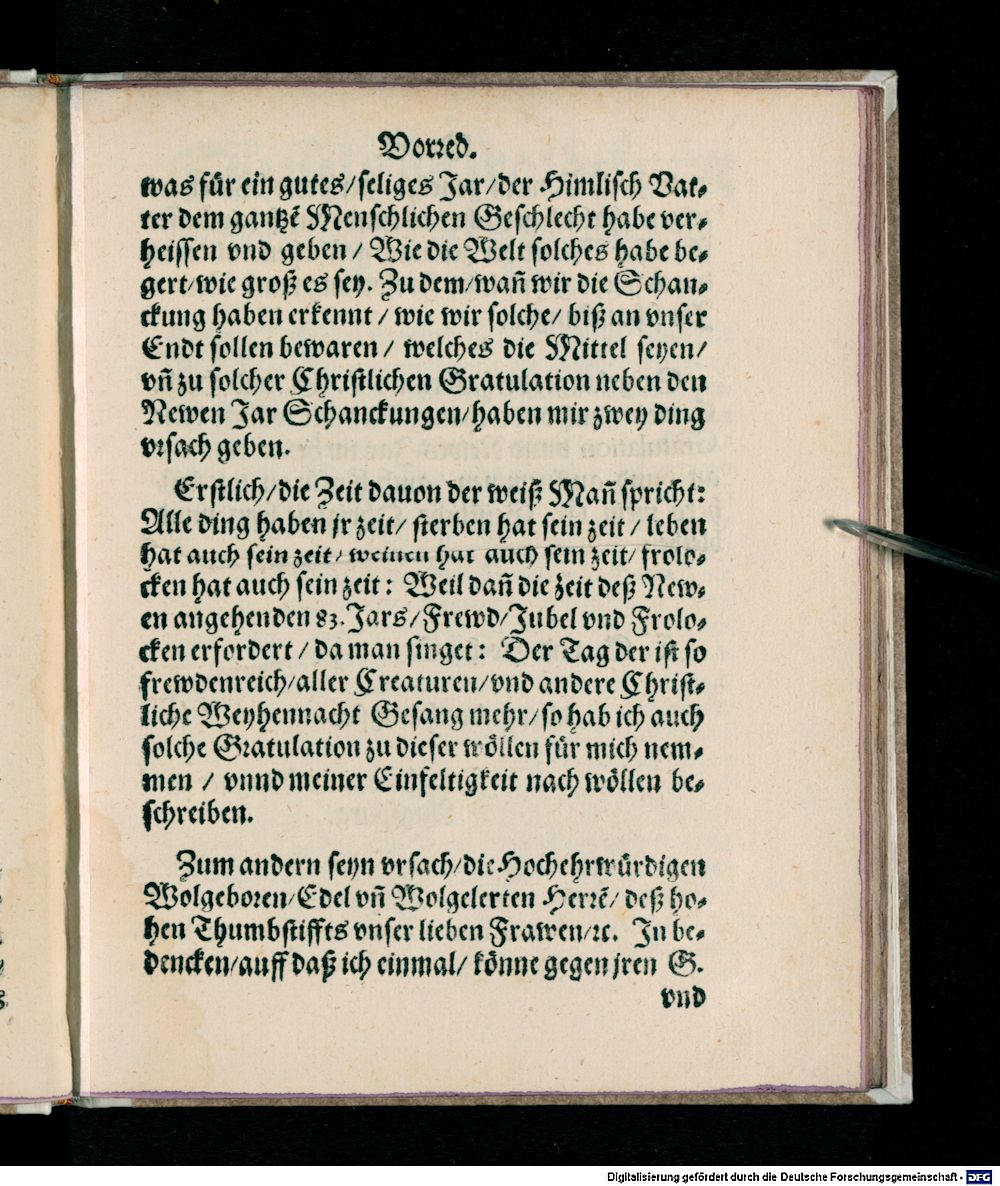 Vorred.
was für ein gutes/seliges Jar/der Himlisch Vat-
ter dem gantzē Menschlichen Geschlecht habe ver-
heissen vnd geben / Wie die Welt solches habe be-
gert/wie groß es sey. Zu dem/wañ wir die Schan-
ckung haben erkennt / wie wir solche/ biß an vnser
Endt sollen bewaren / welches die Mittel seyen/
vñ zu solcher Christlichen Gratulation neben den
Newen Jar Schanckungen/haben mir zwey ding
vrsach geben.
Erstlich/die Zeit dauon der weiß Mañ spricht:
Alle ding haben jr zeit/ sterben hat sein zeit / leben
hat auch sein zeit/ weinen hat auch sein zeit/ frolo-
cken hat auch sein zeit: Weil dañ die zeit deß New-
en angehenden 83. Jars/Frewd/Jubel vnd Frolo-
cken erfordert / da man singet: Der Tag der ist so
frewdenreich/aller Creaturen/vnd andere Christ-
liche Weyhennacht Gesang mehr/so hab ich auch
solche Gratulation zu dieser wöllen für mich nem-
men / vnnd meiner Einfeltigkeit nach wöllen be-
schreiben.
Zum andern seyn vrsach/die Hochehrwürdigen
Wolgeboren/Edel vñ Wolgelerten Herrē/ deß ho-
hen Thumbstiffts vnser lieben Frawen/ꝛc. In be-
dencken/auff daß ich einmal/ könne gegen jren G.
vnd
Digitalisierung gefördert durch die Deutsche Forschungsgemeinschaft - DFG